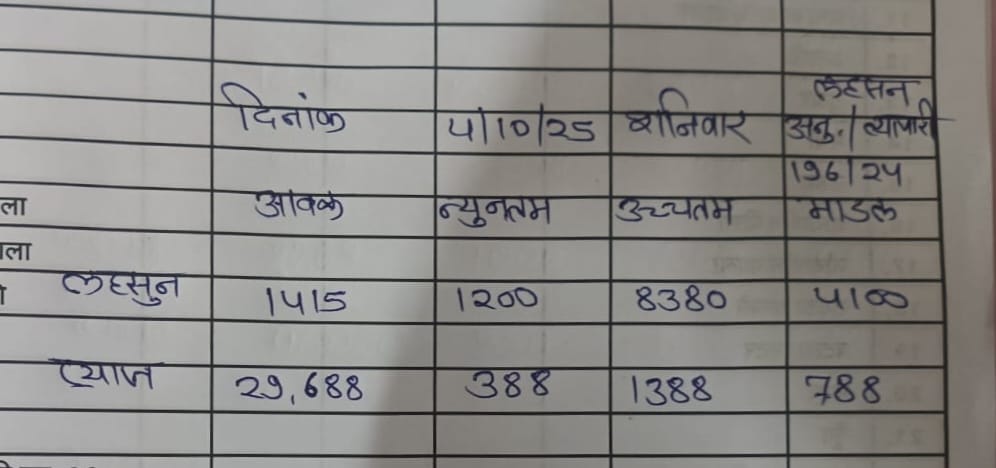 लहसन
दिनांक 4/10/25 शनिवार अनु./व्यापारी
196/24
ला आवक न्युनतम उच्चतम माडल
ला
लहसुन 1415 1200 8380 4100
प्याज 29,688 388 1388 788